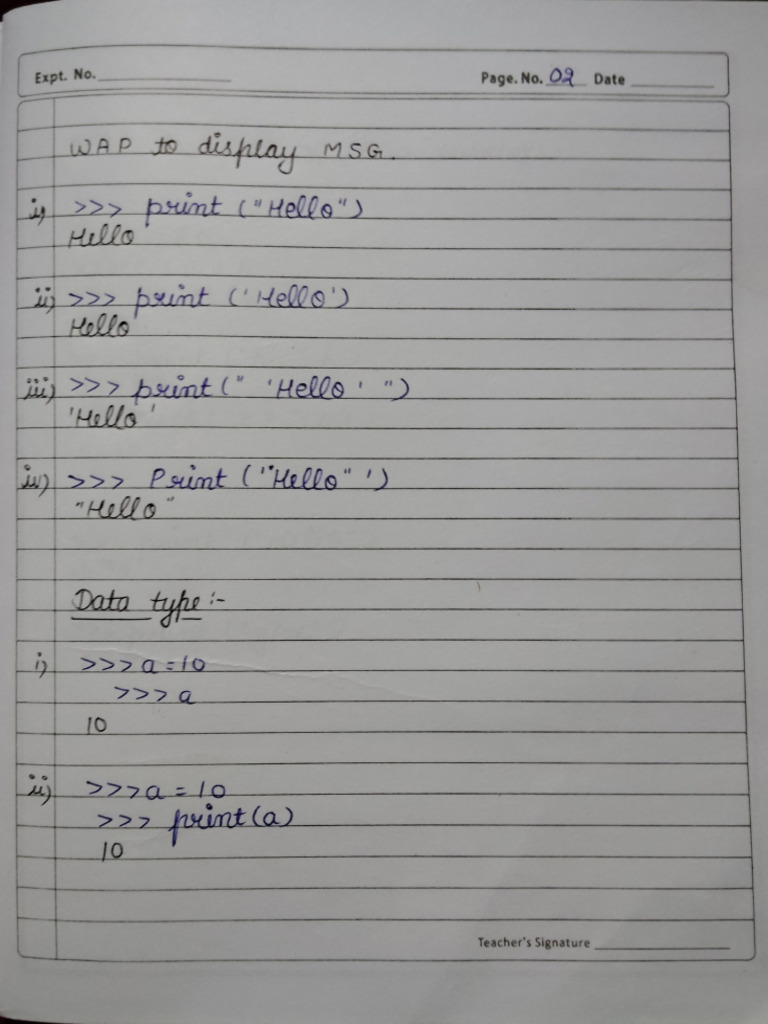 Expt. No. Page. No. 02 Date
WAP to display MSG.
i) >>> print ("Hello")
Hello
ii) >>> print ('Hello')
Hello
iii) >>> print (" 'Hello' ")
'Hello'
iv) >>> Print ('"Hello" ')
"Hello"
Data type :-
i) >>> a = 10
>>> a
10
ii) >>> a = 10
>>> print (a)
10
Teacher's Signature